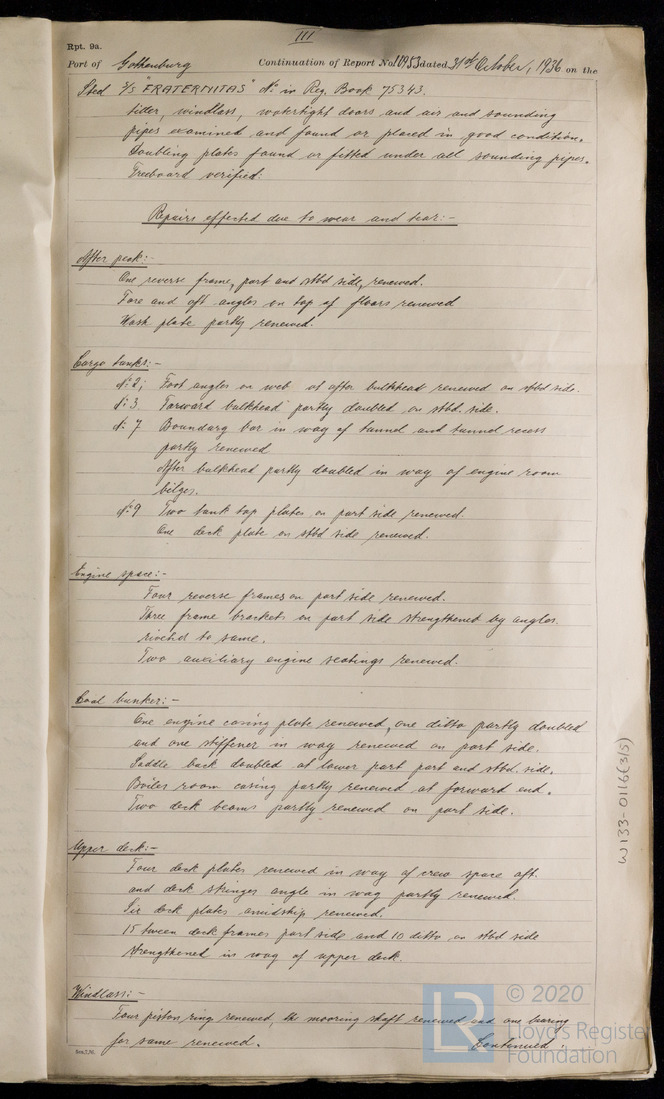 III
Rpt. 9a.
Port of Gothenburg Continuation of Report No. 10953 dated 31st October, 1936 on the
Steel S/S "FRATERNITAS" No. in Reg. Book 75343.
tiller, windlass, watertight doors and air and sounding
pipes examined and found or placed in good condition.
Doubling plates found or fitted under all sounding pipes.
Freeboard verified:
Repairs effected due to wear and tear:-
After peak:-
One reverse frame, port and stbd side, renewed.
Fore and aft angles on top of floors renewed
Wash plate partly renewed.
Cargo tanks:-
No: 2; Foot angles on web at after bulkhead renewed on stbd side.
No: 3 Forward bulkhead partly doubled on stbd. side.
No: 7 Boundary bar in way of tunnel and tunnel recess
partly renewed
After bulkhead partly doubled in way of engine room
bilges.
No: 9 Two tank top plates on port side renewed.
One deck plate on stbd side renewed.
Engine space:-
Four reverse frames on port side renewed.
Three frame brackets on port side strengthened by angles
rivetted to same.
Two auxiliary engine seatings renewed.
Coal bunker:-
One engine casing plate renewed, one ditto partly doubled
and one stiffener in way renewed on port side.
Saddle back doubled at lower part port and stbd side.
Boiler room casing partly renewed at forward end.
Two deck beams partly renewed on port side.
Upper deck:-
Four deck plates renewed in way of crew space aft.
and deck stringer angle in way partly renewed.
Six deck plates amidship renewed.
15 tween deck frames port side and 10 ditto on stbd side
strengthened in way of upper deck.
Windlass:-
Four piston rings renewed, the mooring shaft renewed and one bearing
for same renewed. Continued:
W133-0116(3/5)
LR
© 2020
Lloyd's Register
Foundation